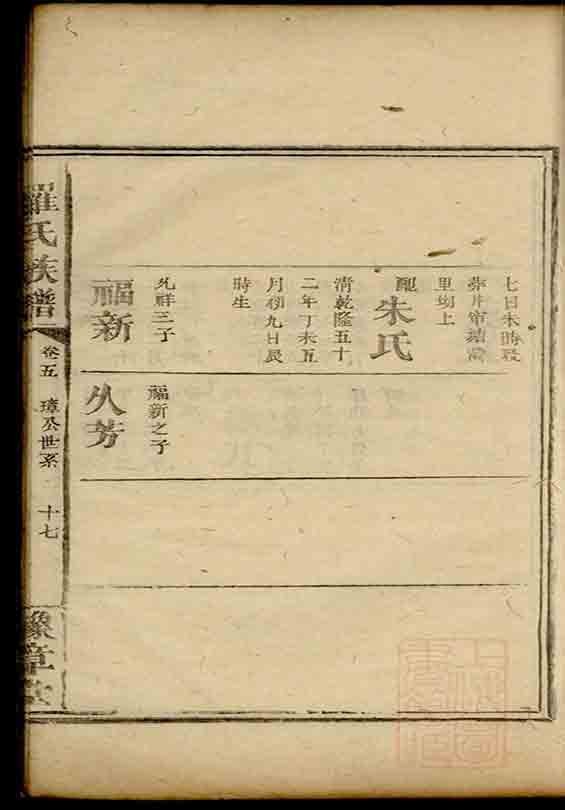 七日未時歿
葬井
里坳上
配朱氏
清乾隆五十
二年丁未五
月初九日辰
時生
允祥三子
福新
福新之子
久芳
羅氏族譜
卷五
璋公世系
十七
豫章堂